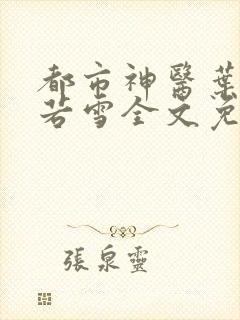 都市神醫葉
若雪全文免
張泉靈